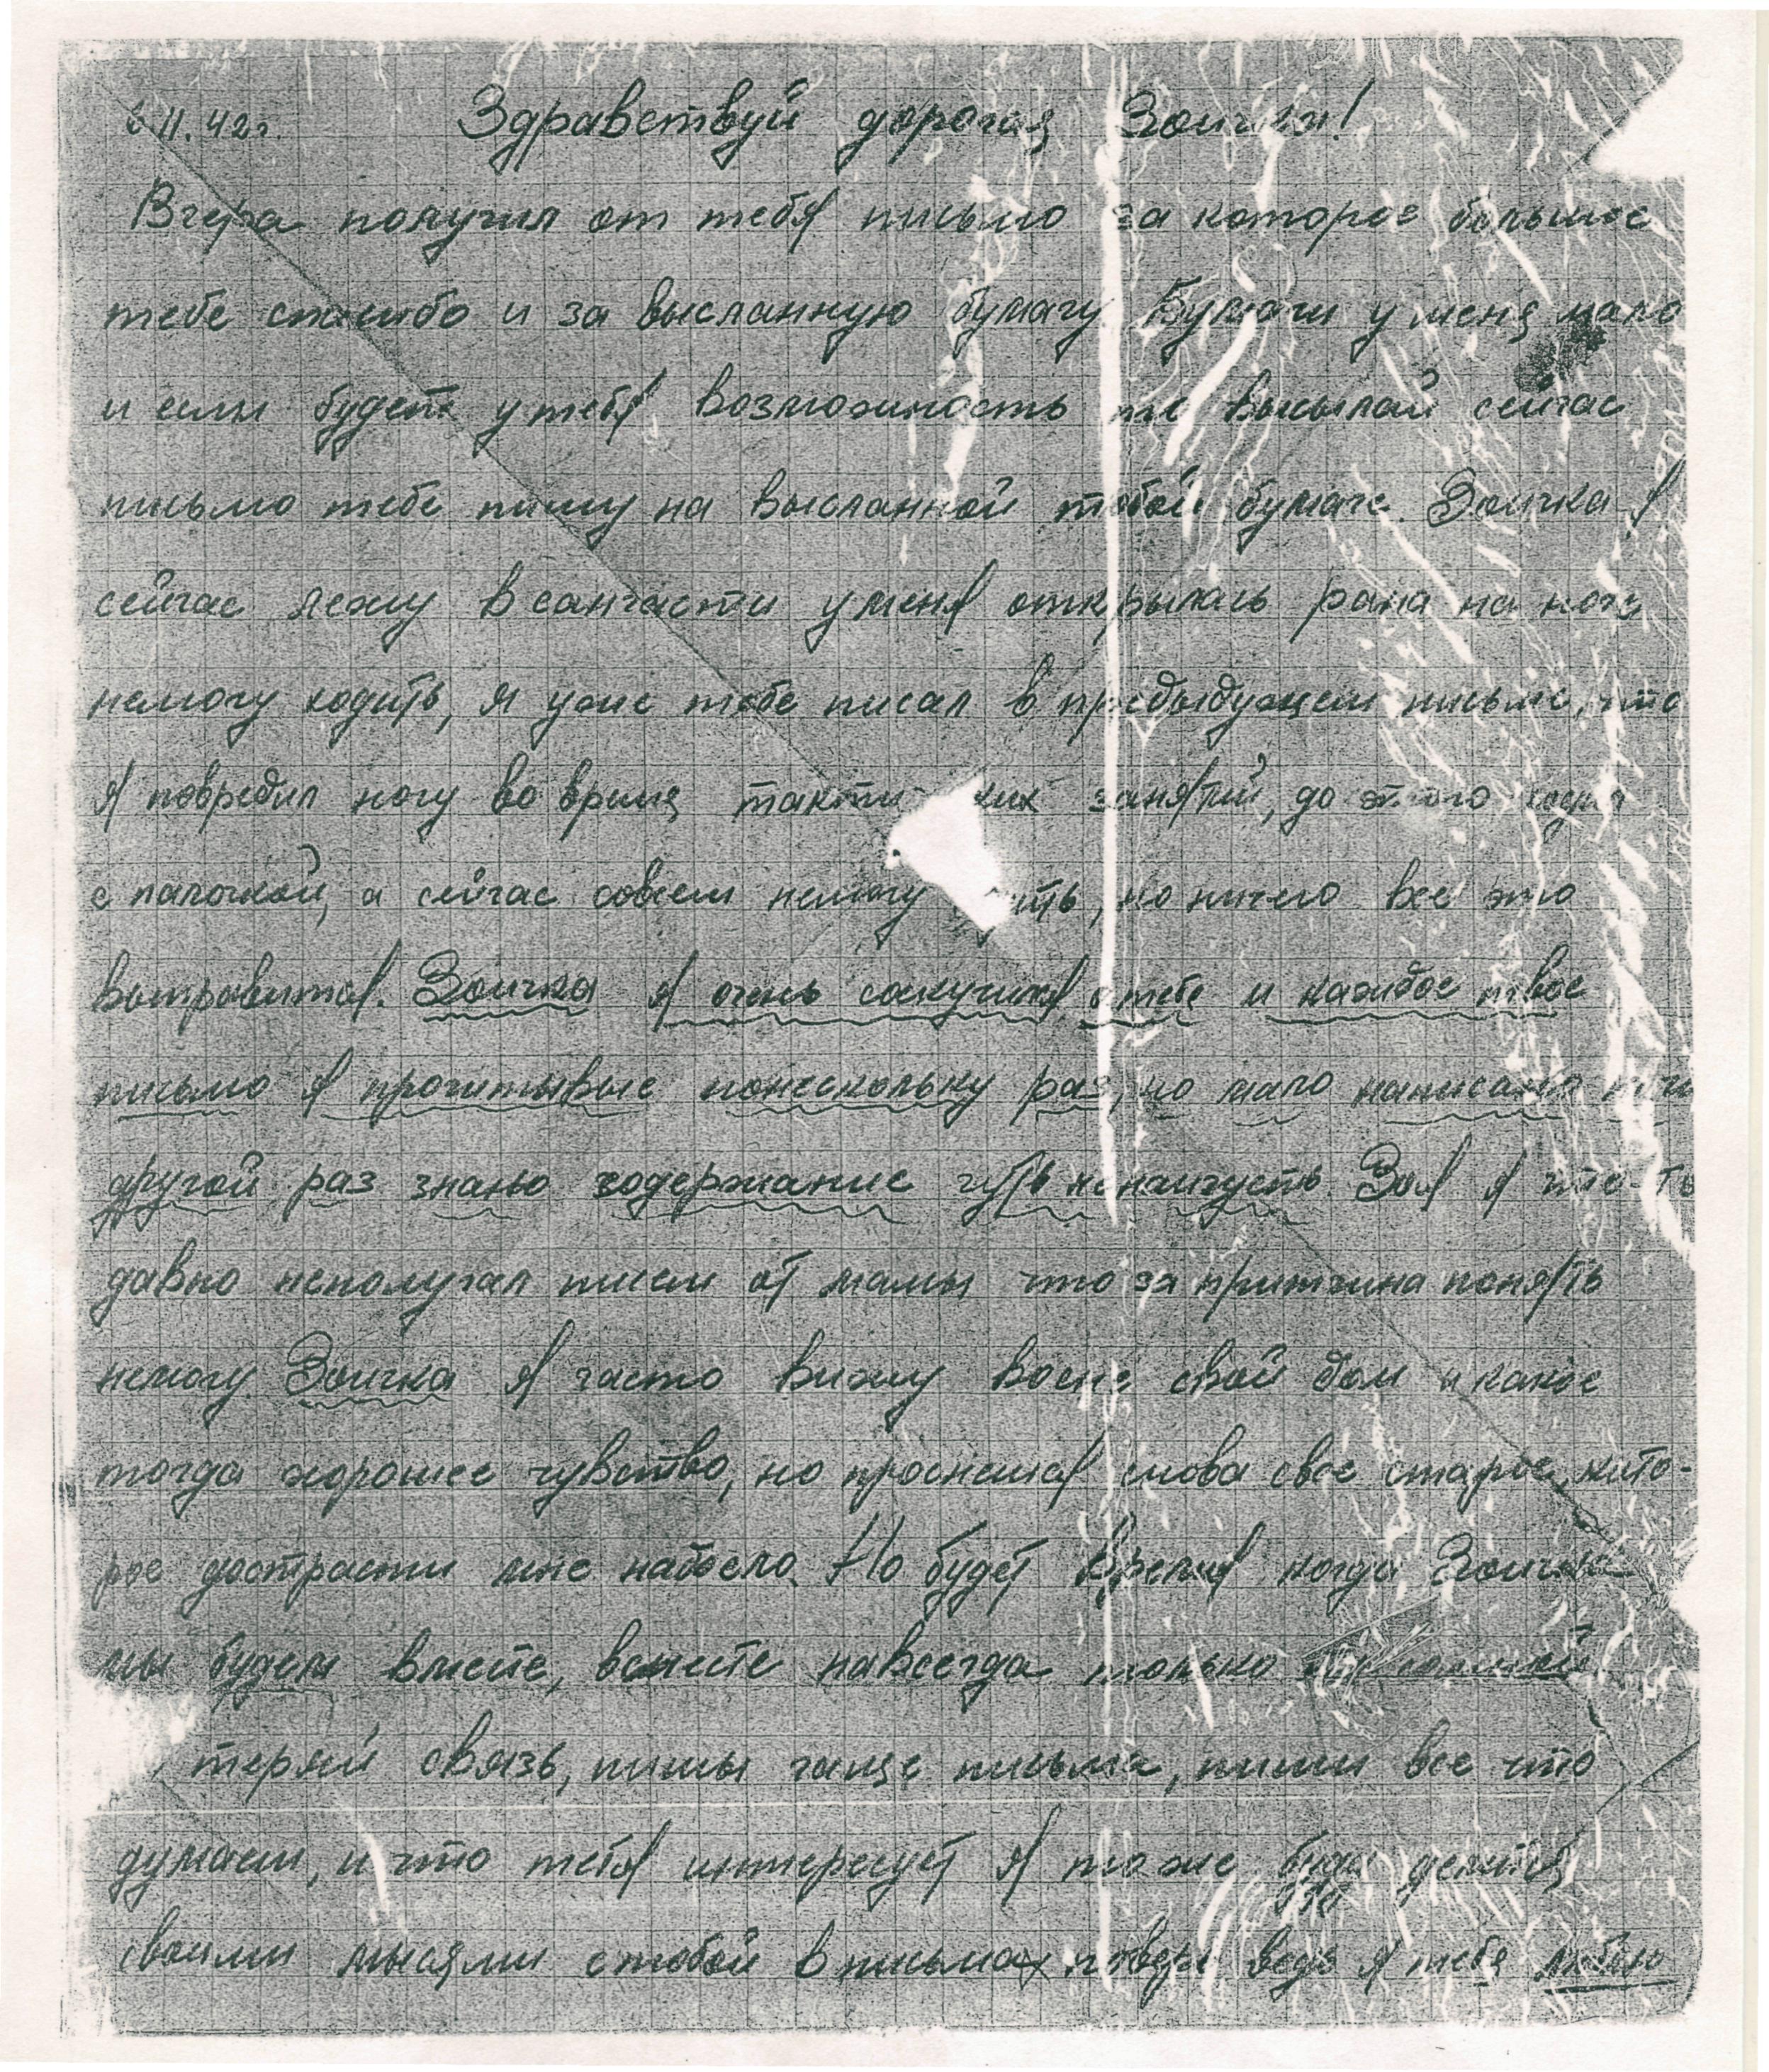 6 11.42г. Здравствуй дорогая Зоичка!
Вчера получил от тебя письмо за которое большое
тебе спасибо и за высланную бумагу Бумаги у меня мало
и если будет у тебя возможность то высылай сейчас
письмо тебе пишу на высланной тобой бумаге. Зоичка я
сейчас лежу в санчасти у меня открылась рана на ноге
немогу ходить, я уже тебе писал в предыдущем письме, что
я повредил ногу во время такти ких занятий, до этого ходил
с палочкой, а сейчас совсем немогу ить, но ничего все это
вытравится. Зоичка я очень соскучился о тебе и каждое твое
письмо я прочитываю понескольку раз, но мало написано и
другой раз знаю содержание чуть ненаизусть. Зоя я что-то
давно неполучал писем от мамы что за притчина понять
немогу. Зоичка я часто вижу восне свой дом и какое
тогда хорошее чувство, но проснешся снова свое старое, кото-
рое дострасти мне надоело. Но будет время когда Зоичка
мы будем вместе, вместе навсегда только
теряй связь, пишы чаще письма, пиши все что
думаеш, и что тебя интересует я тоже буду делится
своими мыслями с тобой в письмах ведь я тебя люблю